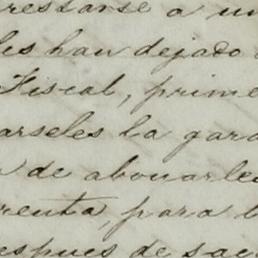 resarse a un
les han dejado
Fiscal, prime
arseles la gara
de abonarles
renta, para
espues de sac